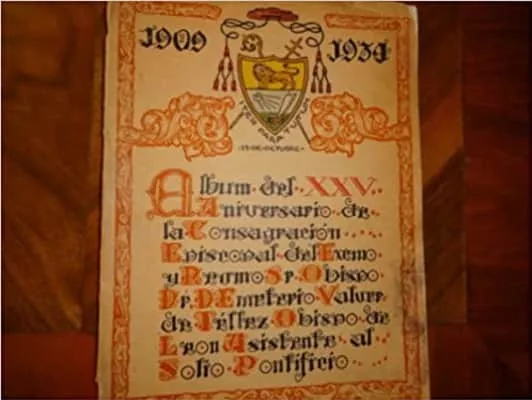 1909
1934
ITER PARA TUTUM
·15·DE·OCTUBRE·
Album·del·XXV·
Aniversario·de·
la·Consagración····
Episcopal·del·Exemo·
y·Rvdmo·Sr·Obispo·
Dr·D·Emeterio·Valver
de·Téllez·Obispo·de
Leon·Asistente·al
Solio·Pontificio····